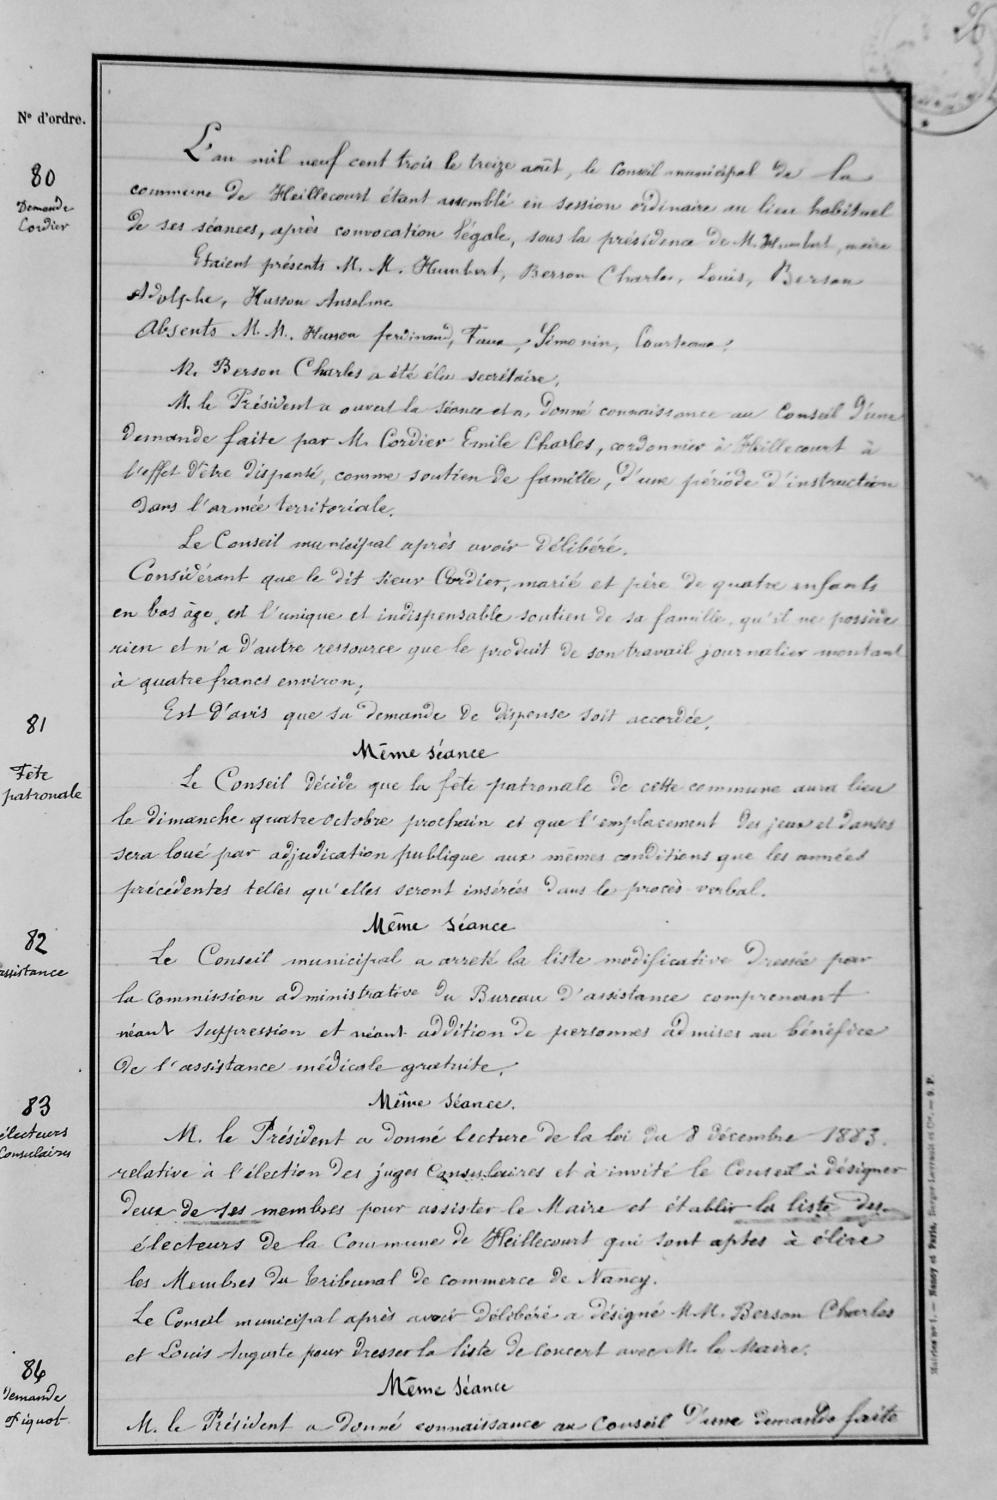 26
N° d'ordre.
80
Demande
Cordier
L'an mil neuf cent trois le treize août, le Conseil municipal de la
commune de Heillecourt étant assemblé en session ordinaire au lieu habituel
de ses séances, après convocation légale, sous la présidence de M. Humbert, maire
Etaient présents M. M. Humbert, Berson Charles, Louis, Berson
Adolphe, Husson Anselme
Absents M. M. Husson ferdinand, Faux, Simonin, Courteaux.
M. Berson Charles a été élu secrétaire.
M. le Président a ouvert la séance et a donné connaissance au Conseil d'une
demande faite par M. Cordier Emile Charles, cordonnier à Heillecourt à
l'effet d'être dispensé, comme soutien de famille, d'une période d'instruction
dans l'armée territoriale.
Le Conseil municipal après avoir délibéré.
Considérant que le dit sieur Cordier, marié et père de quatre enfants
en bas âge, est l'unique et indispensable soutien de sa famille, qu'il ne possède
rien et n'a d'autre ressource que le produit de son travail journalier montant
à quatre francs environ;
Est d'avis que sa demande de dispense soit accordée.
81
Fête
patronale
Même séance
Le Conseil décide que la fête patronale de cette commune aura lieu
le dimanche quatre octobre prochain et que l'emplacement des jeux et danses
sera loué par adjudication publique aux mêmes conditions que les années
précédentes telles qu'elles seront insérées dans le procès-verbal.
82
assistance
Même séance
Le Conseil municipal a arreté la liste modificative dressée par
la commission administrative du Bureau d'assistance comprenant
néant suppression et néant addition de personnes admises au bénéfice
de l'assistance médicale gratuite.
83
électeurs
Consulaires
Même séance.
M. le Président a donné lecture de la loi du 8 décembre 1883.
relative à l'élection des juges Consulaires et à invité le Conseil à désigner
deux de ses membres pour assister le Maire et établir la liste des
électeurs de la Commune de Heillecourt qui sont aptes à élire
les Membres du tribunal de commerce de Nancy.
Le Conseil municipal après avoir délibéré a désigné M M. Berson Charles
et Louis Auguste pour dresser la liste de concert avec M. le Maire.
84
Demande
Piquot
Même séance
M. le Président a donné connaissance au Conseil d'une demande faite
Mairies n° 1. — Nancy et Paris, Berger-Levrault et Cie. — 9 P.